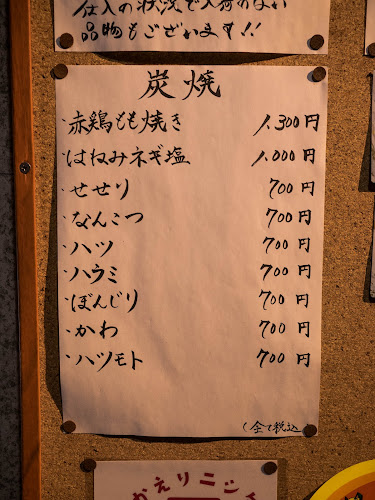 仕入の状況で入荷のない
品物もございます!!
炭焼
・赤鶏もも焼き 1,300円
・はねみネギ塩 1,000円
・せせり 700円
・なんこつ 700円
・ハツ 700円
・ハウミ 700円
・ぼんじり 700円
・かわ 700円
・ハツモト 700円
(全て税込
かえりニジュ